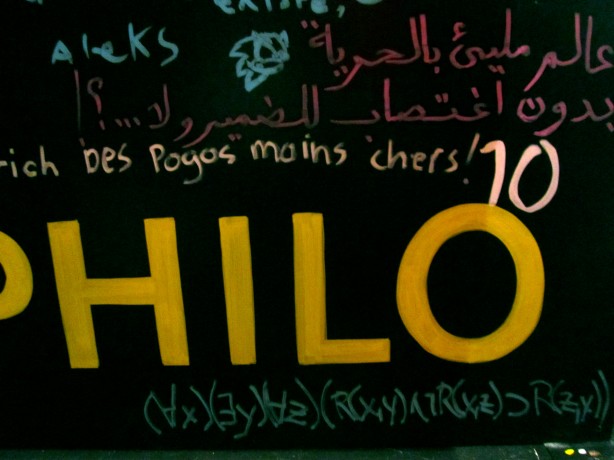 existe,
Aleks
عالم مليئ بالحرية
بدون اغتصاب للضمير ولا...؟!
rich Des Pogos moins chers!
10
PHILO
(∀x)(∃y)(∀z)(R(x,y)∧¬R(x,z)⊃R(z,x))